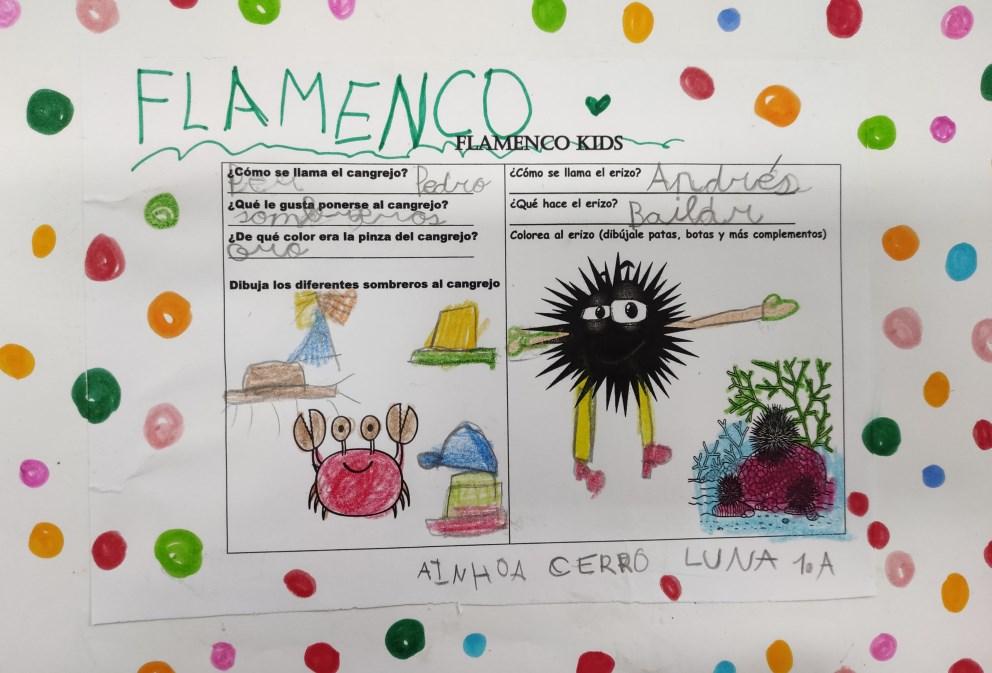 FLAMENCO
FLAMENCO KIDS
¿Cómo se llama el cangrejo? Pedro
¿Qué le gusta ponerse al cangrejo?
sombreros
¿De qué color era la pinza del cangrejo?
oro
Dibuja los diferentes sombreros al cangrejo
¿Cómo se llama el erizo? Andrés
¿Qué hace el erizo? Bailar
Colorea al erizo (dibújale patas, botas y más complementos)
AINHOA CERRO LUNA 1º A